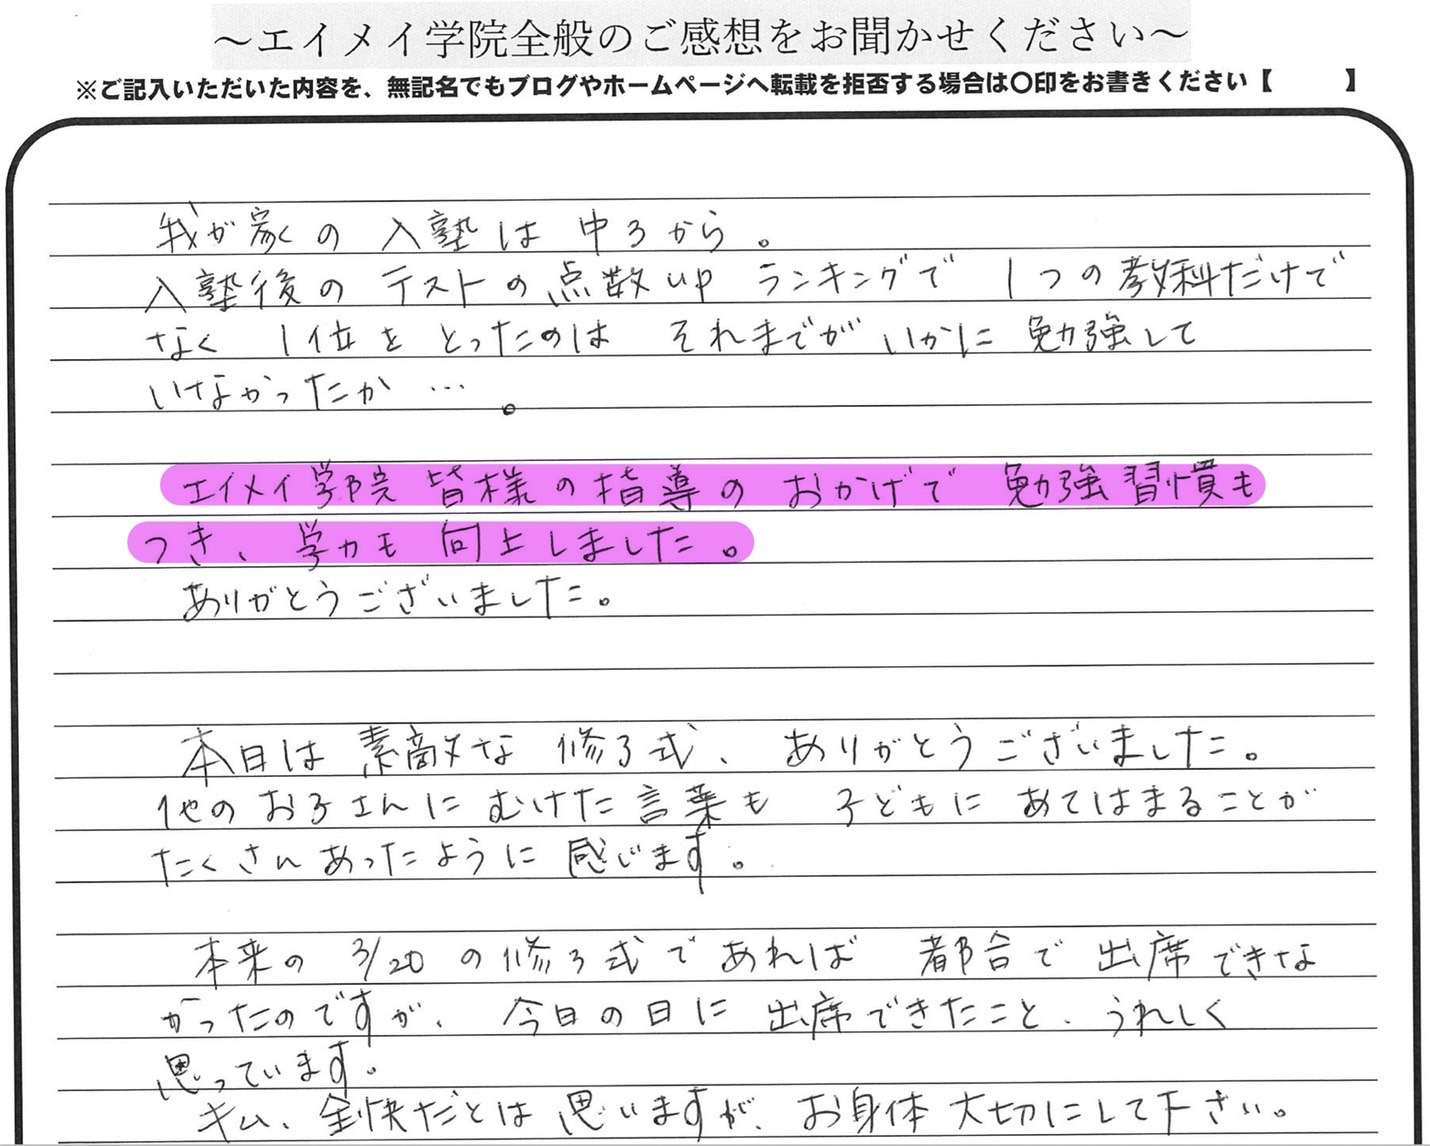 ～エイメイ学院全般のご感想をお聞かせください～
※ご記入いただいた内容を、無記名でもブログやホームページへ転載を拒否する場合は〇印をお書きください【　　】
我が家の 入塾は 中3から。
入塾後の テストの点数up ランキングで 1つの教科だけで
なく 1位を とったのは それまでが いかに 勉強して
いなかったか …。
エイメイ学院 皆様の指導の おかげで 勉強習慣も
つき、学力も 向上しました。
ありがとうございました。
本日は 素敵な 修了式、ありがとうございました。
他の お子さんに むけた 言葉も 子どもに あてはまることが
たくさん あったように 感じます。
本来の 3/20 の修了式で あれば 都合で 出席できな
かったのですが、今日の日に 出席できたこと、うれしく
思っています。
キム、全快だとは 思いますが、お身体 大切にして下さい。